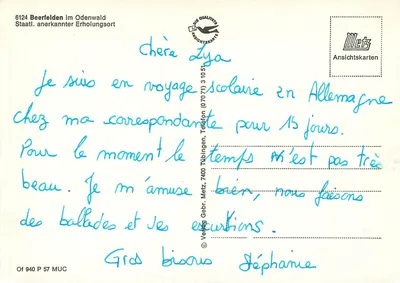 6124 Beerfelden im Odenwald
Staatl. anerkannter Erholungsort
Metz
Ansichtskarten
Chère Lya
Je suis en voyage scolaire en Allemagne
chez ma correspondante pour 15 jours.
Pour le moment le temps n'est pas très
beau. Je m'amuse bien, nous faisons
des ballades et des excurtions.
Gros bisous Stéphanie
© Verlag Gebr. Metz, 7400 Tübingen, Telefon (0 70 71) 3 10 51
Of 940 P 57 MUC